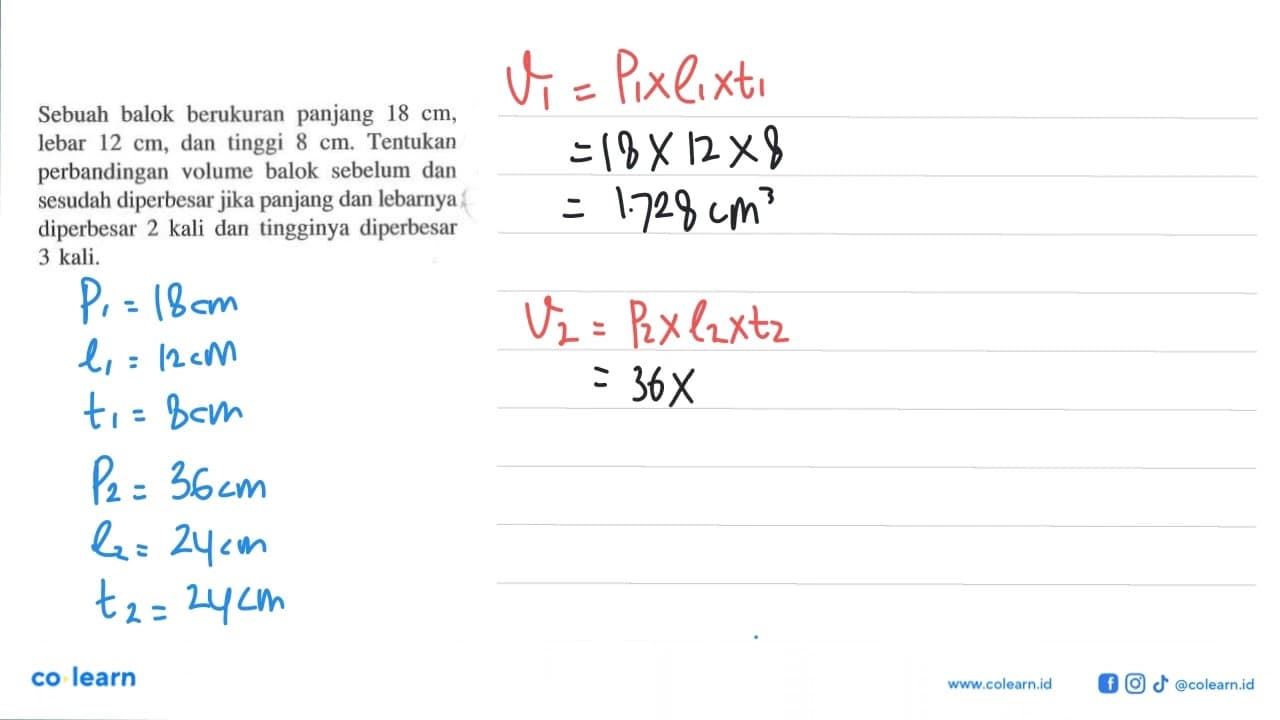 Sebuah balok berukuran panjang 18 cm,
lebar 12 cm, dan tinggi 8 cm. Tentukan
perbandingan volume balok sebelum dan
sesudah diperbesar jika panjang dan lebarnya
diperbesar 2 kali dan tingginya diperbesar
3 kali.
P₁ = 18 cm
l₁ = 12 cm
t₁ = 8 cm
P₂ = 36 cm
l₂ = 24 cm
t₂ = 24 cm
V₁ = P₁ x l₁ x t₁
= 18 x 12 x 8
= 1.728 cm³
V₂ = P₂ x l₂ x t₂
= 36 x
co learn
www.colearn.id
@colearn.id